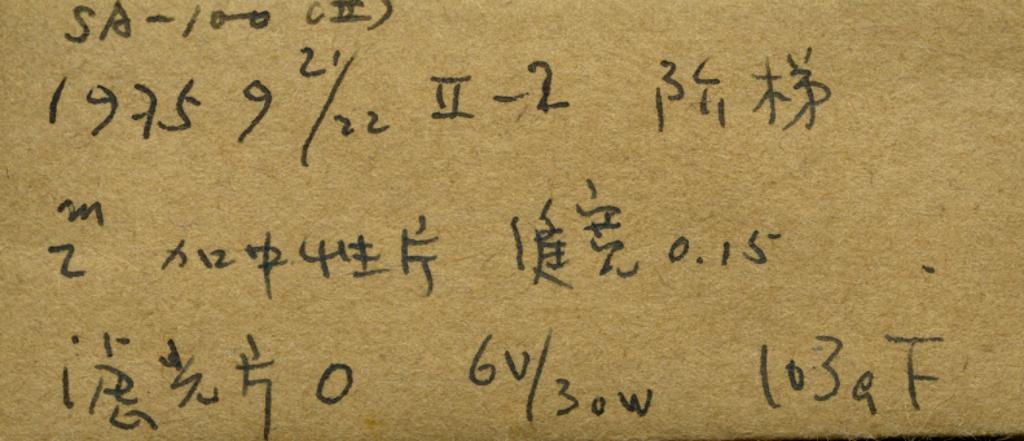 SA-100 (II)
1975 9 21/22 II-2 阶梯
2m 加中性片 宽 0.15
滤光片 0 6V/30W 103a下